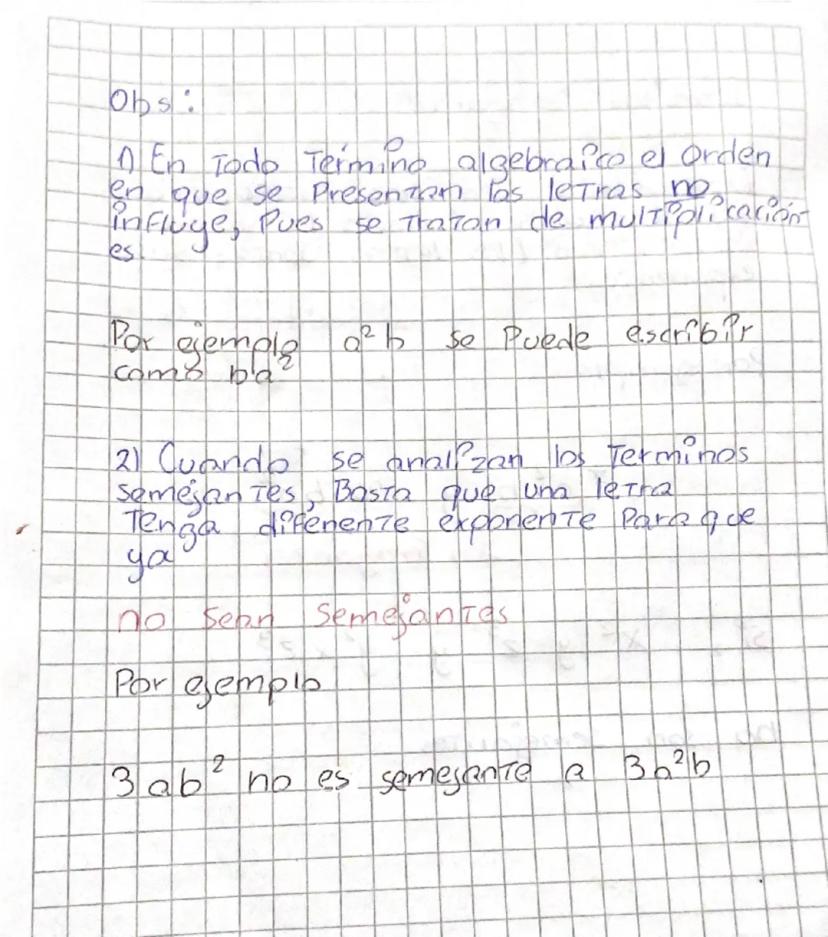 Obs:
1) En Todo Termino algebraico el Orden
en que se Presentan las leTras no
influye, Pues se TraTan de mulTiplicación
es.
Por ejemplo a²b se Puede escribir
como ba²
2) Cuando se analizan los Terminos
semejanTes, BasTa que una leTra
Tenga diferenTe exponenTe Para que
ya
no sean semejanTes
Por ejemplo
3ab² no es semejanTe a 3a²b